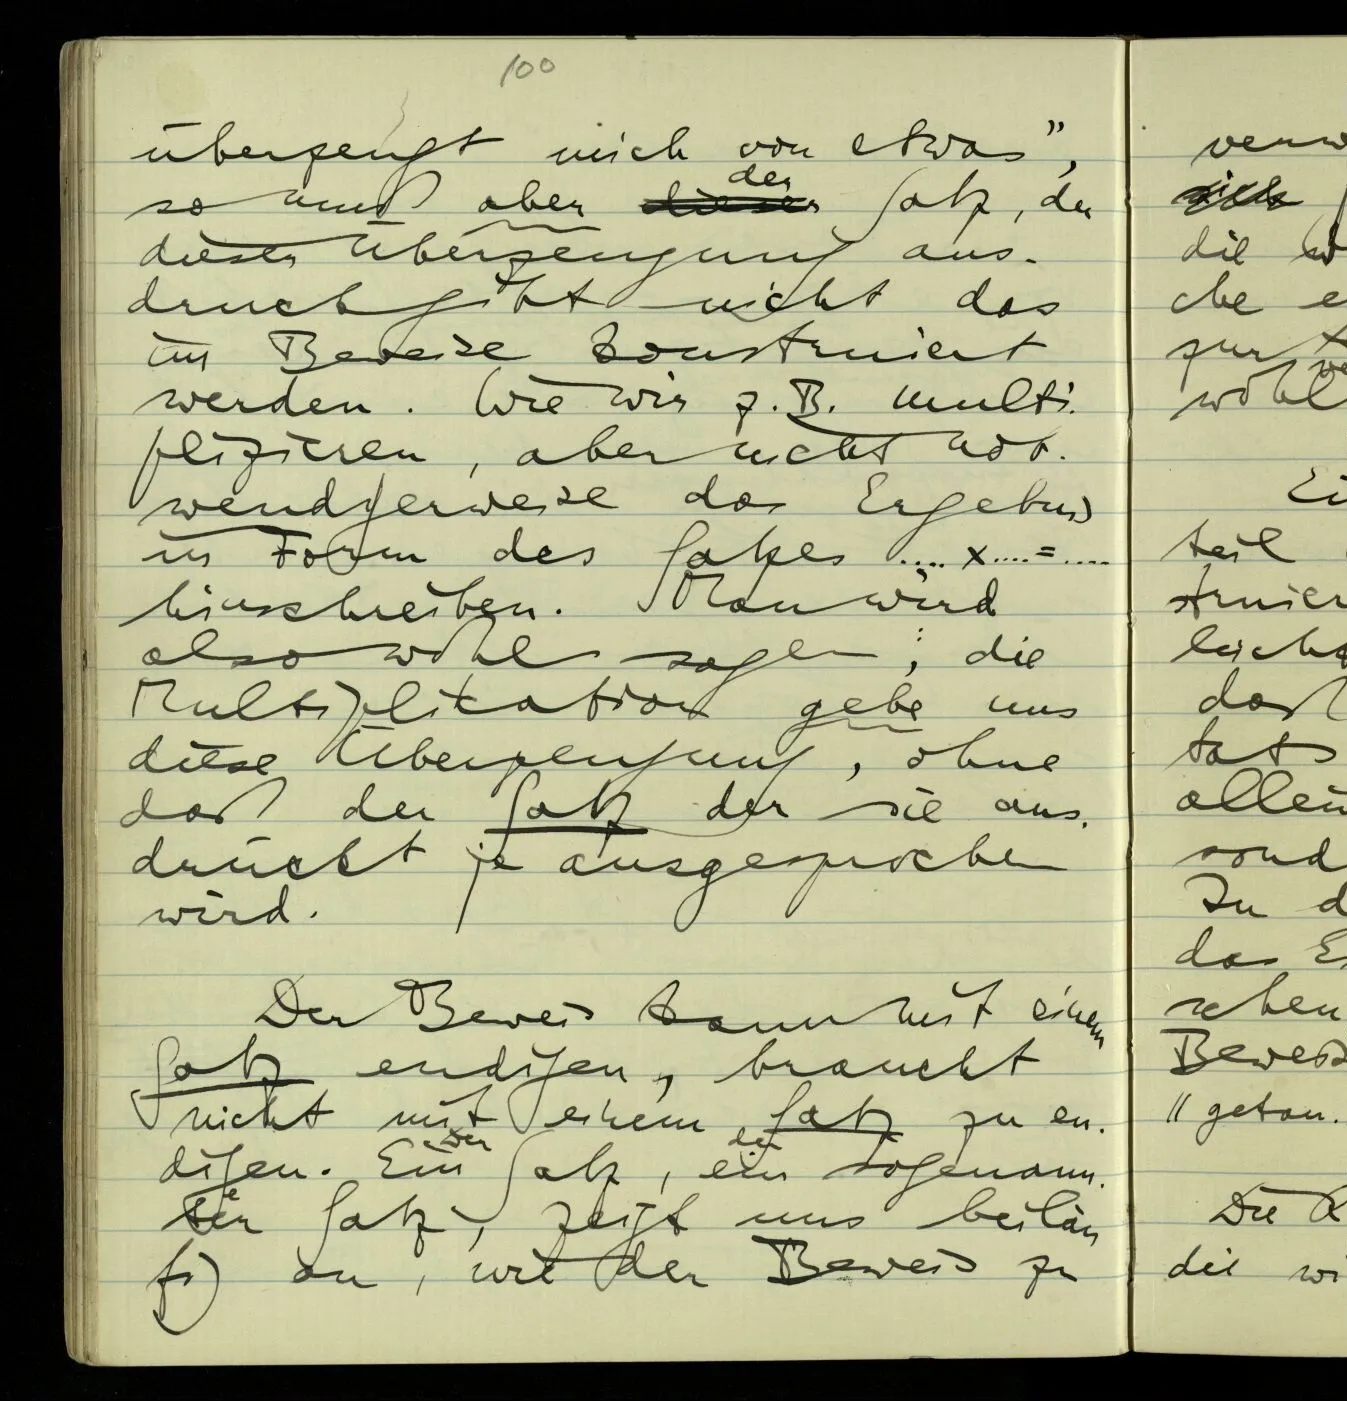 100
überzeugt mich von etwas",
so muß aber dieser der Satz, der
dieser Überzeugung aus-
druck gibt nicht das
im Beweise konstruiert
werden. Wie wir z.B. multi-
plizieren, aber nicht not-
wendigerweise das Ergebnis
in Form des Satzes .... x .... = ....
hinschreiben. Man wird
also wohl sagen; die
Multiplikation gebe uns
diese Überzeugung, ohne
daß der Satz der sie aus-
drückt je ausgesprochen
wird.
Der Beweis kann mit einem
Satz endigen, braucht
nicht mit einem Satz zu en-
digen. Ein Der Satz, ein der sogenann-
te Satz, zeigt uns beiläu
fig an, wie der Beweis zu
sich
die w
che e
zur
wohl
Ei
teil
struier
leicht
daß
tats
allein
sond
In d
das E
schen
Beweis
" getan.
Die
die wi